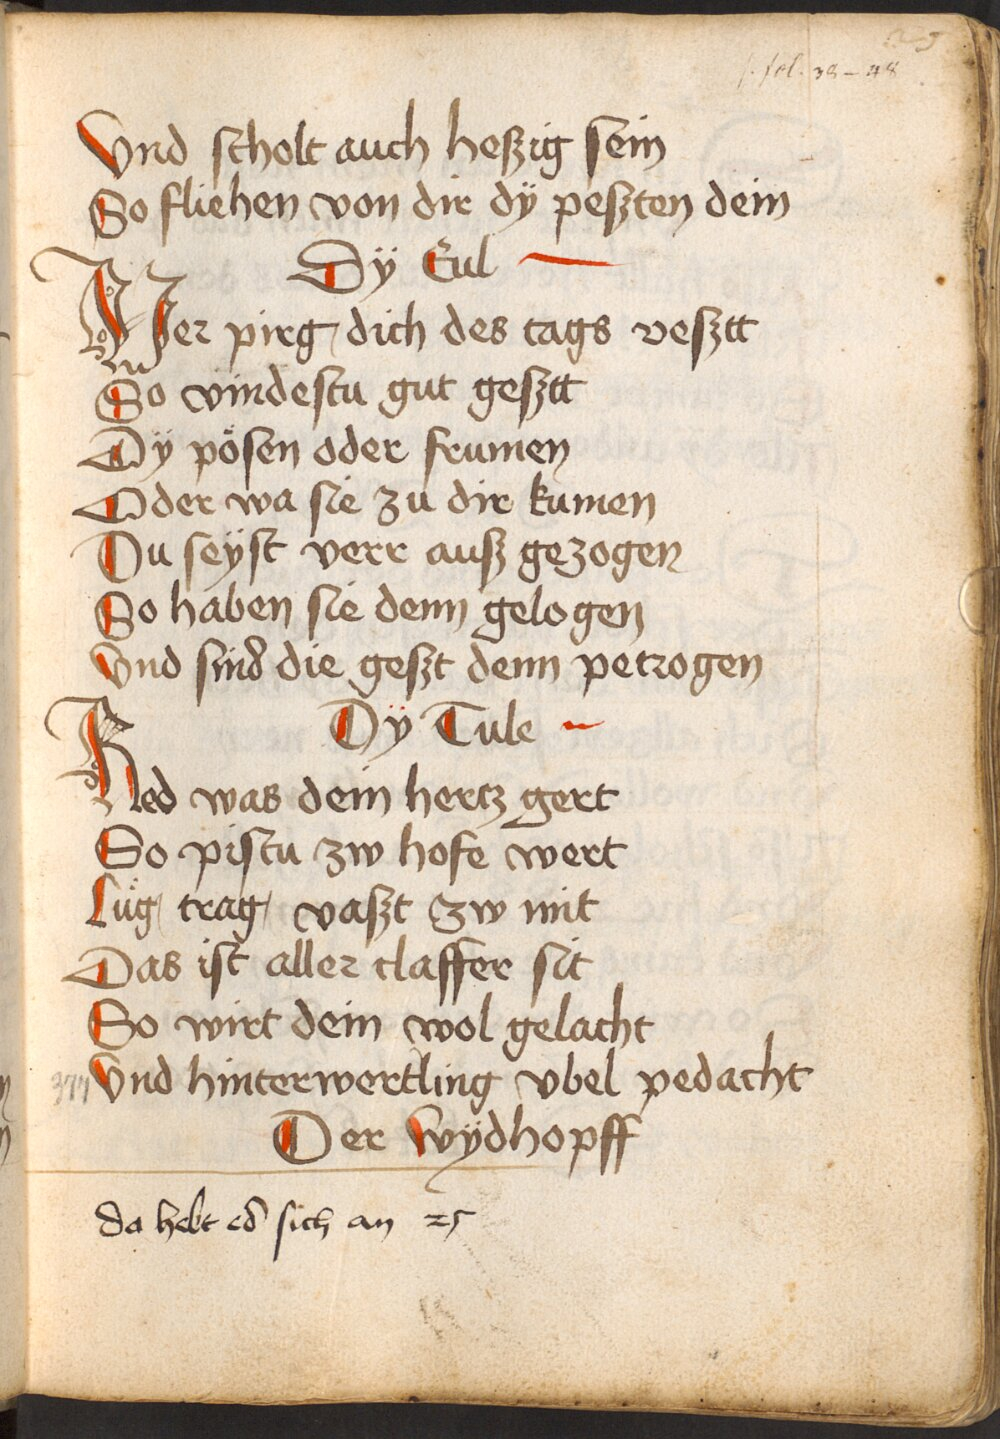 25
s. fol. 38 - 48
Vnd scholt auch heßig sein
So fliehen von dir dÿ peßten dein
Dÿ Eul
Wer pirg dich des tags veßtt
So vindestu gut geßtt
Dÿ pösen oder frumen
Oder wa sie zu dir kumen
Du seÿst verr auß gezogen
So haben sie denn gelogen
Vnd sind die geßt denn petrogen
Dÿ Tule
Red was dein hertz gert
So pistu zw hofe wert
Lüg trag vaßt zw mit
Das ist aller claffer sit
So wirt dein wol gelacht
377 Vnd hinterwertling vbel pedacht
Der Wÿdhopff
da hebt es sich an 25